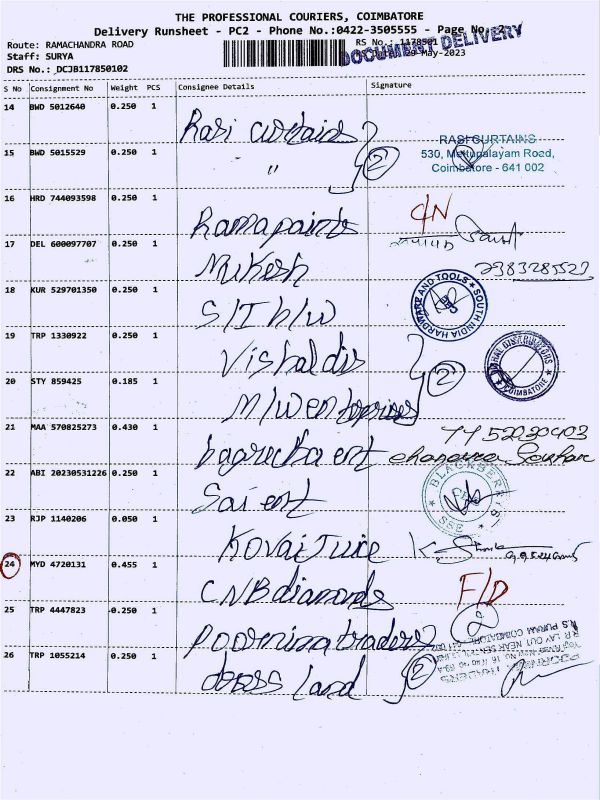 THE PROFESSIONAL COURIERS, COIMBATORE
Delivery Runsheet - PC2 - Phone No.:0422-3505555 - Page No. 2
Route: RAMACHANDRA ROAD
RS No.: 1178501
DOCUMENT DELIVERY
Staff: SURYA
29-May-2023
DRS No.: DCJB117850102
S No Consignment No Weight PCS Consignee Details Signature
14 BWD 5012640 0.250 1 Rasi curtains
15 BWD 5015529 0.250 1 " 2
RASI CURTAINS
530, Mettupalayam Road,
Coimbatore - 641 002
16 HRD 744093598 0.250 1 Ramapaints C/N
17 DEL 600097707 0.250 1 Mukesh
18 KUR 529701350 0.250 1 S/I h/w
SOUTH INDIA HARDWARE AND TOOLS
19 TRP 1330922 0.250 1 Vishal dis
VISHAL DISTRIBUTORS
COIMBATORE
20 STY 859425 0.185 1 M/w enterprises 2
21 MAA 570825273 0.430 1 bagrecha ent
22 ABI 20230531226 0.250 1 Sai ent
BLACKBERRY
23 RJP 1140206 0.050 1 Kovai Juice
24 MYD 4720131 0.455 1 CNB diamonds F/D
25 TRP 4447823 0.250 1 Poornima traders
26 TRP 1055214 0.250 1 dress land 2
POORNIMA TRADERS
R.S PURAM COIMBATORE